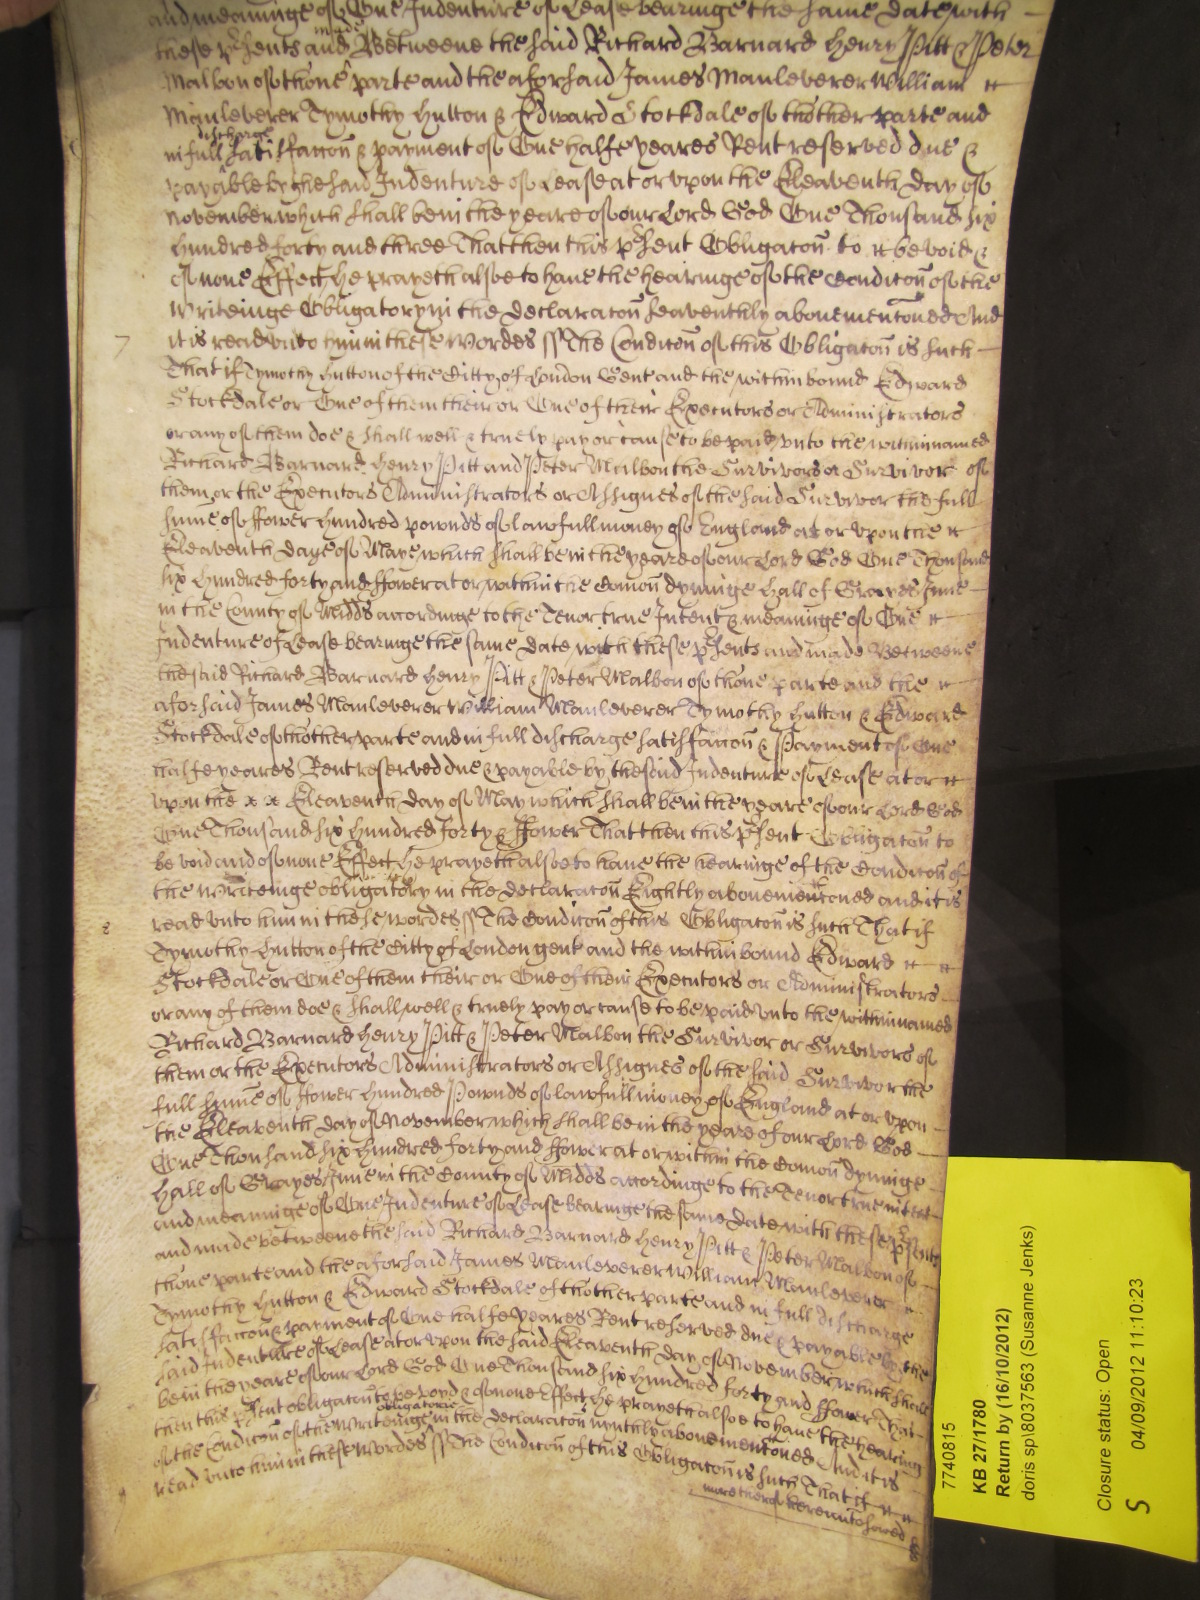 and meaninge of One Indenture of Lease bearinge the same date with
these p'sents and made Betweene the said Richard Barnard Henry Pitt & Peter
Malbon of thone parte and the aforsaid James Manleverer William
Manleverer Tymothy Hutton & Edward Stockdale of thother parte and
discharge
in full satisfaccon & payment of One halfe yeares Rent reserved due &
payable by the said Indenture of Lease at or vpon the Eleaventh day of
November which shall be in the yeare of our Lord God One Thousand six
hundred forty and three That then this p'sent Obligacon to be void &
of none Effect he prayeth alsoe to have the hearinge of the Condicon of the
Writeinge Obligatory in the declaracon seaventhly abovemenconed And
7 it is read vnto him in these Wordes ss The Condicon of this Obligacon is such
That if Tymothy Hutton of the Citty of London Gent and the within bound Edward
Stockdale or One of them their or One of their Executors or Administrators
or any of them doe & shall well & truely pay or cause to be paid vnto the withinnamed
Richard Barnard Henry Pitt and Peter Malbon the Survivors or Survivor of
them or the Executors Administrators or Assignes of the said Survivor the full
summe of ffower hundred pownds of lawfull money of England at or vpon the
Eleaventh daye of Maye which shall be in the yeare of our Lord God One Thousand
six hundred forty and ffower at or within the Comon dyninge Hall of Grayes Inne
in the County of Midds accordinge to the Tenor true Intent & meaninge of One
Indenture of Lease bearinge the same date with these p'sents and made Betweene
the said Richard Barnard Henry Pitt & Peter Malbon of thone parte and the
aforsaid James Manleverer William Manleverer Tymothy Hutton & Edward
Stockdale of thother parte and in full discharge satisfaccon & Payment of One
halfe yeares Rent reserved due & payable by the said Indenture of Lease at or
vpon the Eleaventh day of May which shall be in the yeare of our Lord God
One Thousand six hundred forty & ffower That then this p'sent Obligacon to
be void and of none Effect he prayeth alsoe to have the hearinge of the Condicon of
the writeinge obligatory in the declaracon Eightly abovemenconed and it is
8 read vnto him in these wordes ss The Condicon of this Obligacon is such That if
Tymothy Hutton of the Citty of London gent and the within bound Edward
Stockdale or One of them their or One of their Executors or Administrators
or any of them doe & shall well & truely pay or cause to be paid vnto the withinnamed
Richard Barnard Henry Pitt & Peter Malbon the Survivor or Survivors of
them or the Executors Administrators or Assignes of the said Survivor the
full summe of ffower hundred Pownds of lawfull money of England at or vpon
the Eleaventh day of November which shall be in the yeare of our Lord God
One Thousand six hundred forty and ffower at or within the Comon dyninge
Hall of Grayes Inne in the County of Midds accordinge to the Tenor true intent
and meaninge of One Indenture of Lease bearinge the same date with these p'sents
and made betweene the said Richard Barnard Henry Pitt & Peter Malbon of
thone parte and the aforsaid James Manleverer William Manleverer
Tymothy Hutton & Edward Stockdale of thother parte and in full discharge
satisfaccon & payment of One halfe yeares Rent reserved due & payable by the
said Indenture of Lease at or vpon the said Eleaventh day of November which shall
be in the yeare of our Lord God One Thousand six hundred forty and ffower That
then this p'sent obligacon to be voyd & of none Effect he prayeth alsoe to have the hearing
of the Condicon of the writeinge obligatorie in the declaracon nynthly abovemenconed And it is
read vnto him in these Wordes ss The Condicon of this Obligacon is such That if
more therof herevnto sowed
7740815
KB 27/1780
Return by (16/10/2012)
doris sp\8037563 (Susanne Jenks)
Closure status: Open
04/09/2012 11:10:23
S